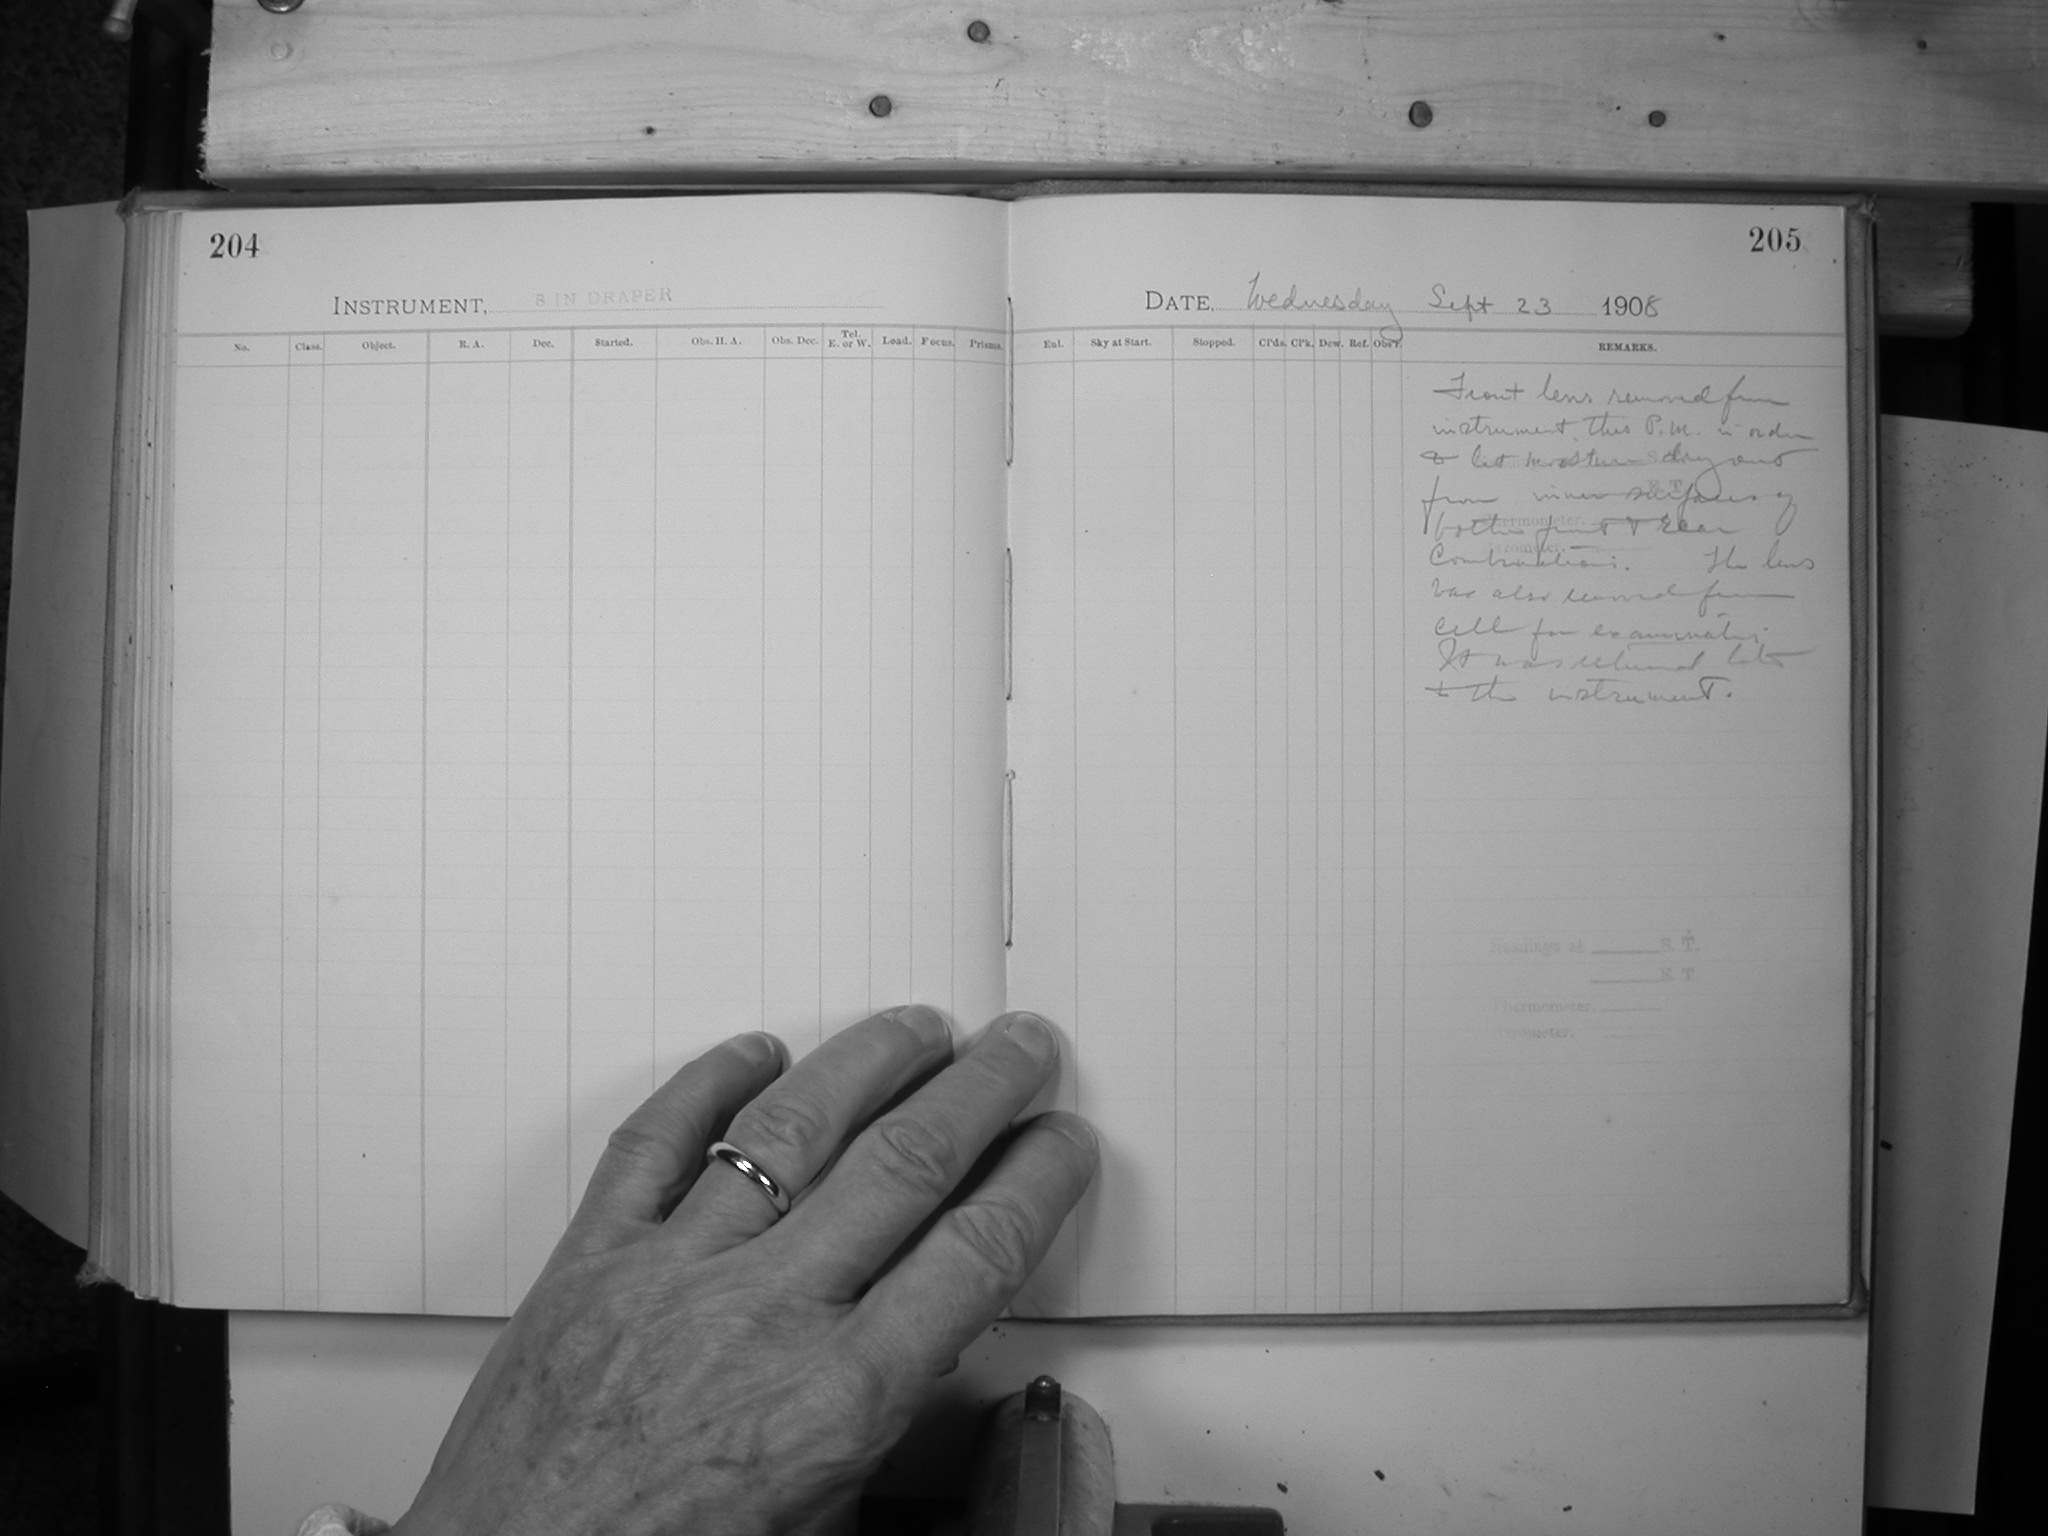 204
INSTRUMENT, 8 IN DRAPER
No. Class. Object. R. A. Dec. Started. Obs. H. A. Obs. Dec. Tel. E. or W. Load. Focus. Prisms.
205
DATE, Wednesday Sept 23 1908
Ent. Sky at Start. Stopped. Cl'ds. Cl'k. Dew. Ref. Obs'r. REMARKS.
Front lens removed from
instrument this P.M. in order
to let moisture dry out
S.
E. T.
from inner surfaces of
Thermometer.
both front & rear
Barometer.
Combinations. The lens
was also removed from
cell for examination.
It was returned later
to the instrument.
Readings at S. T.
E. T.
Thermometer.
Barometer.